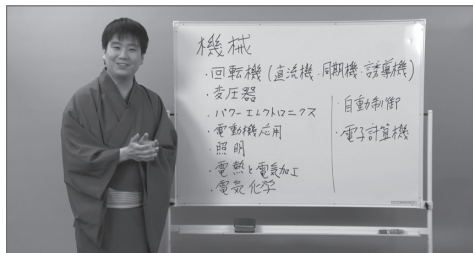 機械
・回転機(直流機・同期機・誘導機)
・変圧器
・パワーエレクトロニクス
・電動機応用
・照明
・電熱と電気加工
・電気化学
・自動制御
・電子計算機